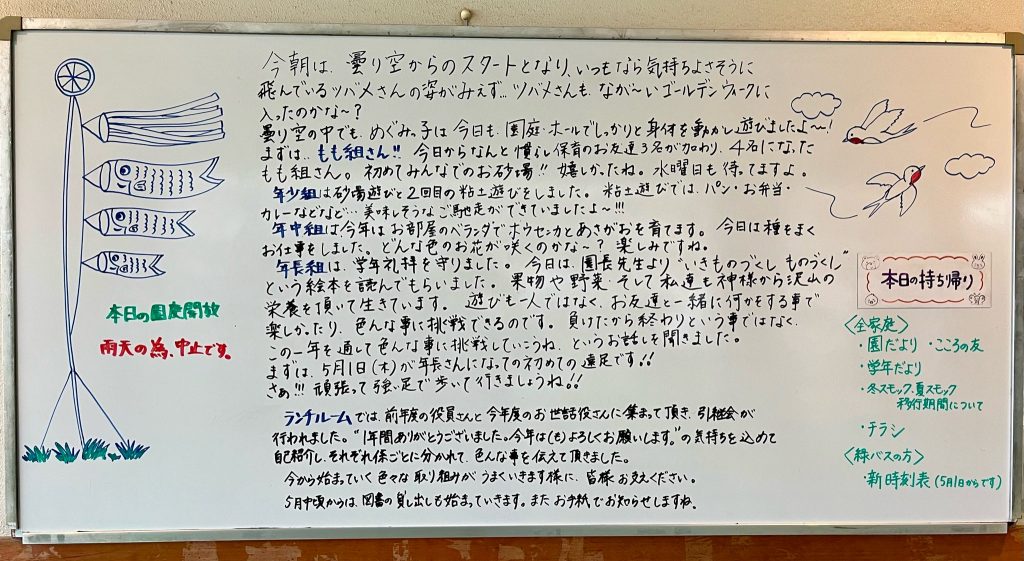 今朝は、曇り空からのスタートとなり、いつもなら気持ちよさそうに
飛んでいるツバメさんの姿がみえず…ツバメさんも、なが〜いゴールデンウィークに
入ったのかな〜?
曇り空の中でも、めぐみっ子は今日も、園庭・ホールでしっかりと身体を動かし遊びましたよ〜!
まずは‥もも組さん!! 今日からなんと慣らし保育のお友達3名が加わり、4名になった
もも組さん。初めてみんなでのお砂場!! 嬉しかったね。水曜日も待ってますよ。
年少組は砂場遊びと2回目の粘土遊びをしました。粘土遊びでは、パン・お弁当・
カレーなどなど…美味しそうなご馳走ができていましたよ〜!!!
年中組は今年はお部屋のベランダでホウセンカとあさがおを育てます。今日は種をまく
お仕事をしました。どんな色のお花が咲くのかな〜?楽しみですね。
年長組は、学年礼拝を守りました。今日は、園長先生より"いきものづくし ものづくし"
という絵本を読んでもらいました。果物や野菜・そして私達も神様から沢山の
栄養を頂いて生きています。遊びも一人ではなく、お友達と一緒に何かをする事で
楽しかったり、色んな事に挑戦できるのです。負けたから終わりという事ではなく、
この一年を通して色んな事に挑戦していこうね、というお話しを聞きました。
まずは、5月1日(木)が年長さんになっての初めての遠足です!!
さぁ!!! 頑張って強い足で歩いて行きましょうね!!
ランチルームでは、前年度の役員さんと今年度のお世話役さんに集まって頂き、引継会が
行われました。"1年間ありがとうございました。今年は(も)よろしくお願いします。"の気持ちを込めて
自己紹介し、それぞれ係ごとに分かれて、色んな事を伝えて頂きました。
今から始まっていく色々な取り組みがうまくいきます様に、皆様お支えください。
5月中頃からは、図書の貸し出しも始まっていきます。またお手紙でお知らせしますね。
本日の園庭開放
雨天の為、中止です。
本日の持ち帰り
〈全家庭〉
・園だより ・こころの友
・学年だより
・冬スモック、夏スモック
移行期間について
・チラシ
〈緑バスの方〉
・新時刻表(5月1日からです)